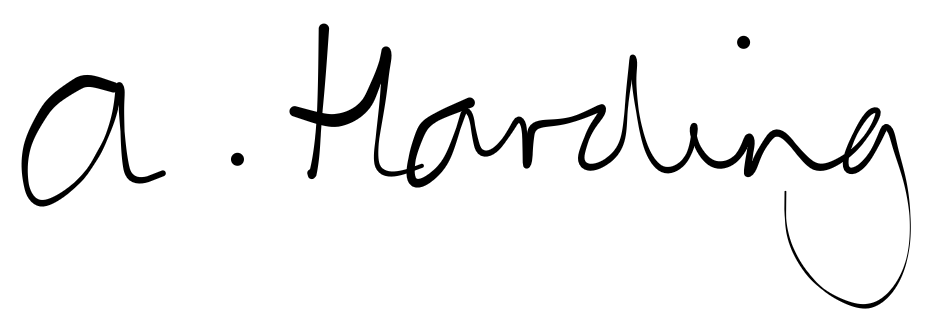 a. Harding